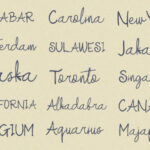 ABAR Carolina New
erdam SULAWESI Jaka
aska Toronto Singa
FORNIA Alkadabra CAN
GIUM Aquarius Maja